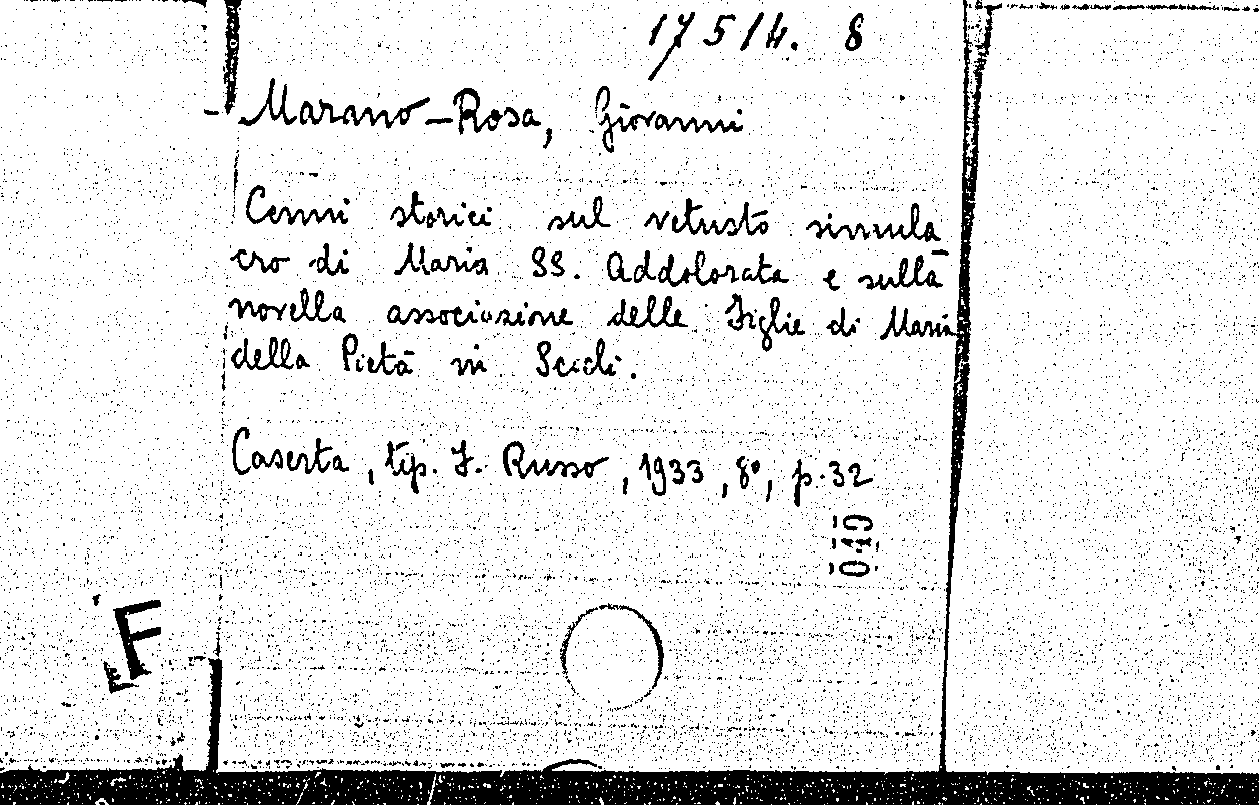 17514. 8
Marano-Rosa, Giovanni
Cenni storici sul vetusto simula-
cro di Maria SS. Addolorata e sulla
novella associazione delle Figlie di Maria
della Pietà in Scicli.
Caserta, tip. F. Russo, 1933, 8°, p. 32
F